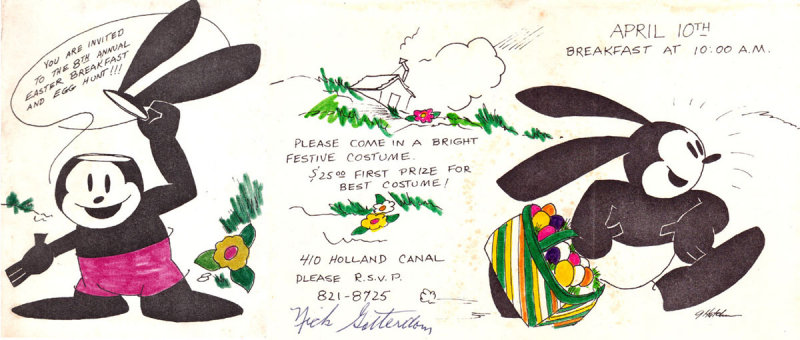 YOU ARE INVITED
TO THE 8TH ANNUAL
EASTER BREAKFAST
AND EGG HUNT!!!
APRIL 10TH
BREAKFAST AT 10:00 A.M.
PLEASE COME IN A BRIGHT
FESTIVE COSTUME.
$25.00 FIRST PRIZE FOR
BEST COSTUME!
410 HOLLAND CANAL
PLEASE R.S.V.P.
821-8725
Nick